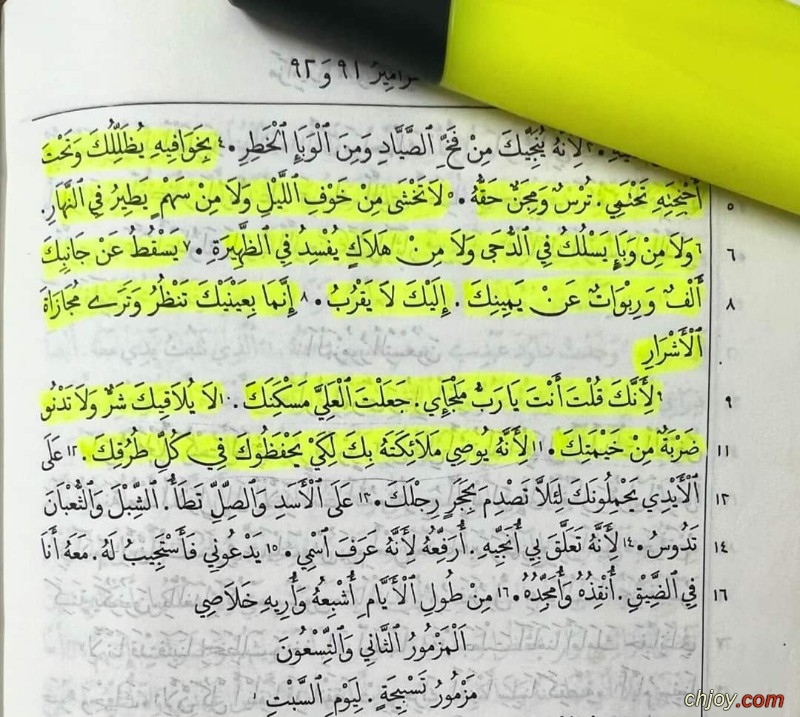 مزامير ٩١ و ٩٢
٣ لِأَنَّهُ يُنَجِّيكَ مِنْ فَخِّ ٱلصَّيَّادِ وَمِنَ ٱلْوَبَإِ ٱلْخَطِرِ. ٤ بِخَوَافِيهِ يُظَلِّلُكَ وَتَحْتَ
٥ أَجْنِحَتِهِ تَحْتَمِي. تُرْسٌ وَمِجَنٌّ حَقُّهُ. ٥ لَا تَخْشَى مِنْ خَوْفِ ٱللَّيْلِ وَلَا مِنْ سَهْمٍ يَطِيرُ فِي ٱلنَّهَارِ.
٦ ٦ وَلَا مِنْ وَبَإٍ يَسْلُكُ فِي ٱلدُّجَى وَلَا مِنْ هَلَاكٍ يُفْسِدُ فِي ٱلظَّهِيرَةِ. ٧ يَسْقُطُ عَنْ جَانِبِكَ
٨ أَلْفٌ وَرِبْوَاتٌ عَنْ يَمِينِكَ. إِلَيْكَ لَا يَقْرُبُ. ٨ إِنَّمَا بِعَيْنَيْكَ تَنْظُرُ وَتَرَى مُجَازَاةَ
ٱلْأَشْرَارِ
٩ ٩ لِأَنَّكَ قُلْتَ أَنْتَ يَا رَبُّ مَلْجَإِي. جَعَلْتَ ٱلْعَلِيَّ مَسْكِنَكَ. ١٠ لَا يُلَاقِيكَ شَرٌّ وَلَا تَدْنُو
١١ ضَرْبَةٌ مِنْ خَيْمَتِكَ. ١١ لِأَنَّهُ يُوصِي مَلَائِكَتَهُ بِكَ لِكَيْ يَحْفَظُوكَ فِي كُلِّ طُرُقِكَ. ١٢ عَلَى
١٣ ٱلْأَيْدِي يَحْمِلُونَكَ لِئَلَّا تَصْدِمَ بِحَجَرٍ رِجْلَكَ. ١٣ عَلَى ٱلْأَسَدِ وَٱلصِّلِّ تَطَأُ. ٱلشِّبْلَ وَٱلثُّعْبَانَ
١٤ تَدُوسُ. ١٤ لِأَنَّهُ تَعَلَّقَ بِي أُنَجِّيهِ. أُرَفِّعُهُ لِأَنَّهُ عَرَفَ ٱسْمِي. ١٥ يَدْعُونِي فَأَسْتَجِيبُ لَهُ. مَعَهُ أَنَا
١٦ فِي ٱلضِّيْقِ. أُنْقِذُهُ وَأُمَجِّدُهُ. ١٦ مِنْ طُولِ ٱلْأَيَّامِ أُشْبِعُهُ وَأُرِيهِ خَلَاصِي
اَلْمَزْمُورُ ٱلثَّانِي وَٱلتِّسْعُونَ
مَزْمُورُ تَسْبِيحَةٍ. لِيَوْمِ ٱلسَّبْتِ
chjoy.com